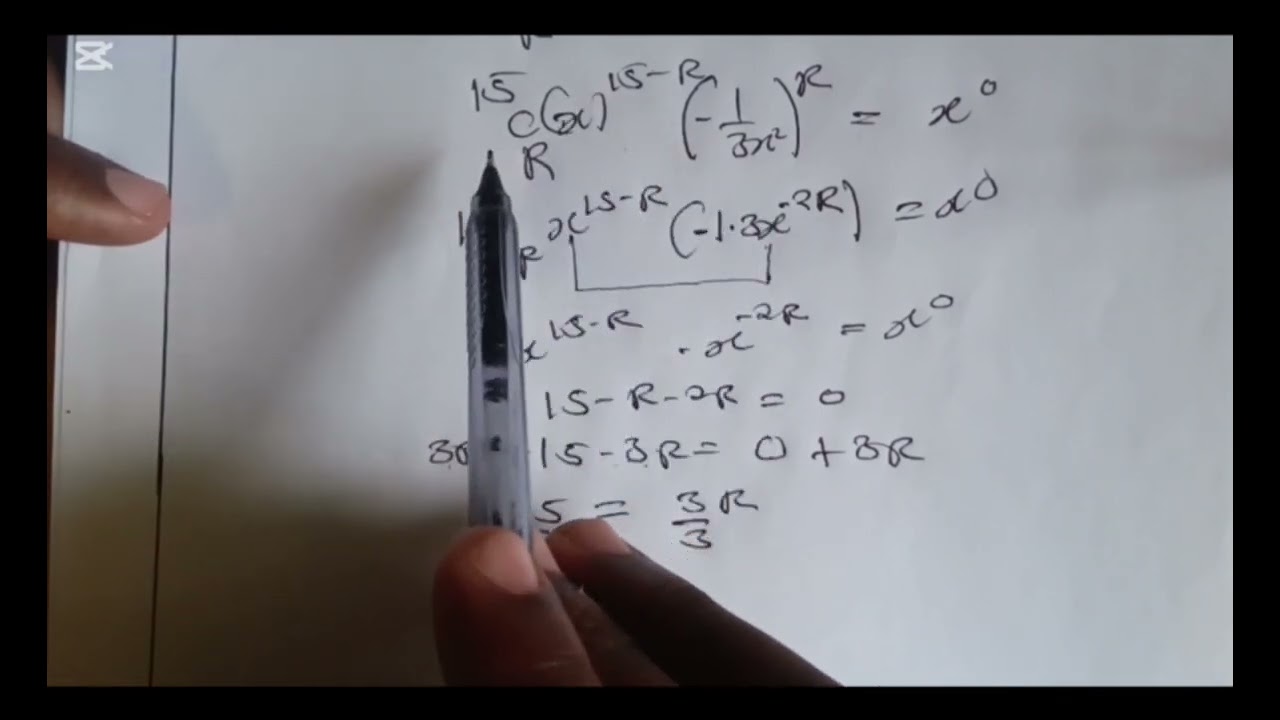 15
C(x)^15-R (-1/3x²)^R = x^0
R
x^15-R (-1·3x^-2R) = x^0
R
x^15-R · x^-2R = x^0
15-R-2R = 0
15-3R = 0+3R
5 = 3/3 R